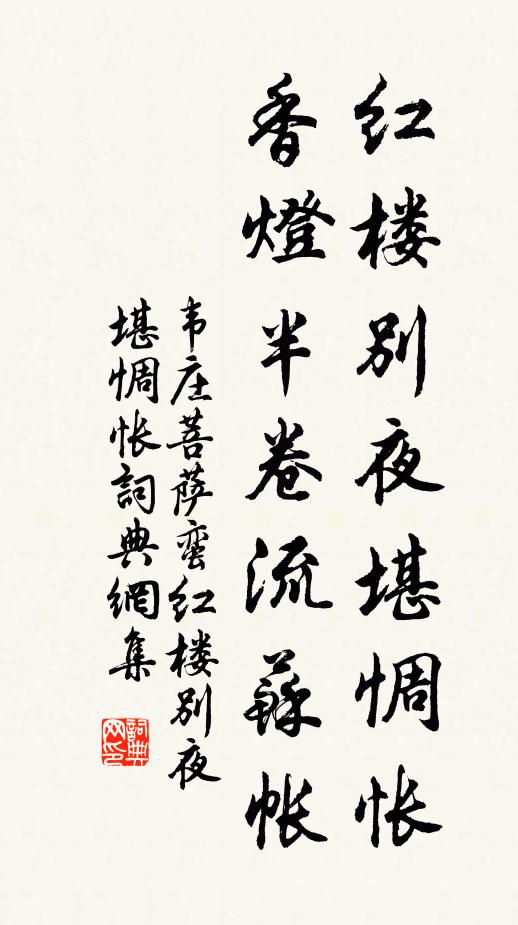 红楼别夜堪惆怅
香燈半卷流蘇帐
韦庄菩萨蛮红楼别夜
堪惆怅词典網集
詞典
网印